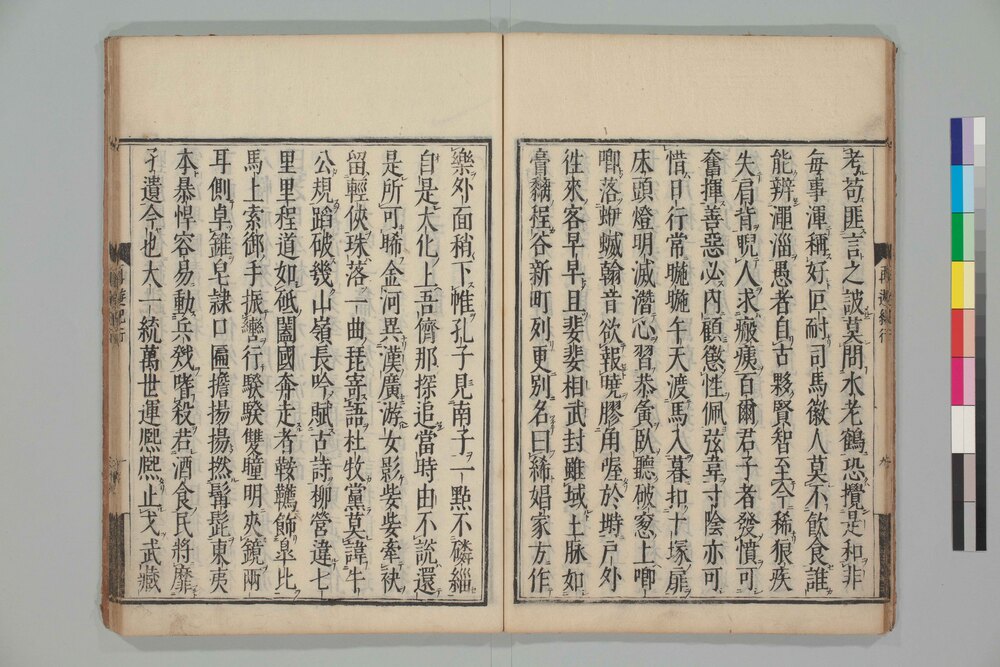 考苟匪言之詖莫問水老鶴恐攪是和非
毎事渾稱好叵耐司馬徽人莫不飲食誰
能辨澠淄愚者自古夥賢智至今稀狼疾
失肩背睨人求瘢痍百爾君子者發憤可
奮揮善惡必内顧懲性佩弦韋寸陰亦可
惜日行常𣉙𣉙午天渡馬入暮扣十塚扉
床頭燈明滅潛心習恭寅臥聽破窓上啣
啣落蛜蝛翰音欲報曉膠角喔於塒戸外
徃來客早早且斐斐相武封雖域土脉如
膏黐桯谷新町列更別名曰絺娼家方作
樂外面稍下帷孔子見南子一點不磷緇
自是大化上吾儕那探追當時由不説還
是所可晞金河異漢廣游女影娤娤牽袂
留輕俠珠落一曲琵寄語杜牧黨莫諱牛
公規蹈破幾山嶺長吟賦古詩柳營違七
里里程道如砥闔國奔走者鞍韉飾皐比
馬上索御手振轡行騤騤雙瞳明夾鏡兩
耳側卓錐皂隷口匾擔揚揚撚髯髭東夷
本暴悍容易動兵戣嗜殺若酒食民將靡
孑遺今也大一統萬世運熙熙止戈武藏